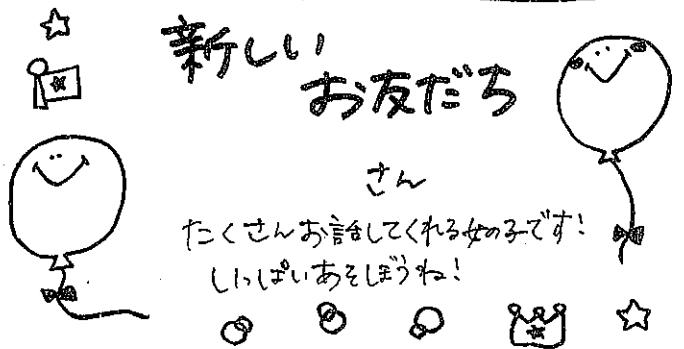 新しい
お友だち
さん
たくさんお話してくれる女の子です!
いっぱいあそぼうね!